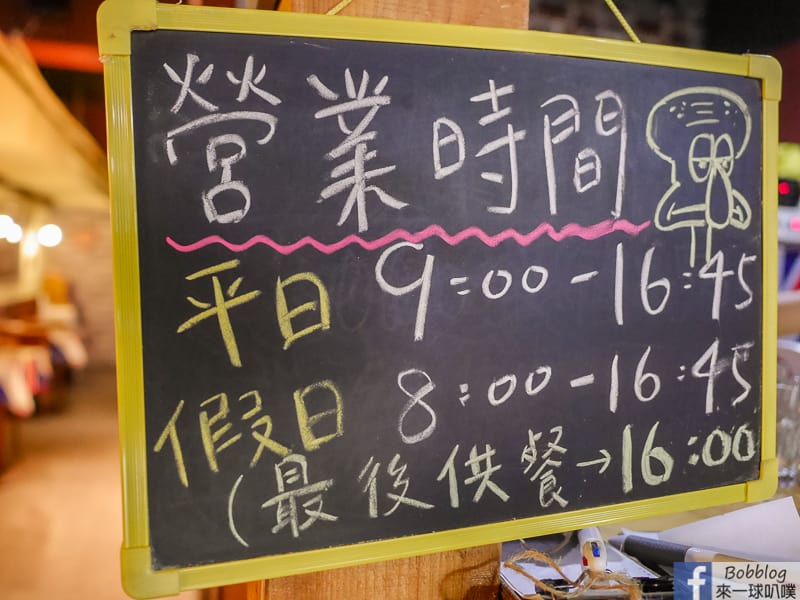 營業時間
平日 9:00-16:45
假日 8:00-16:45
(最後供餐→16:00
f Bobblog
來一球叭噗